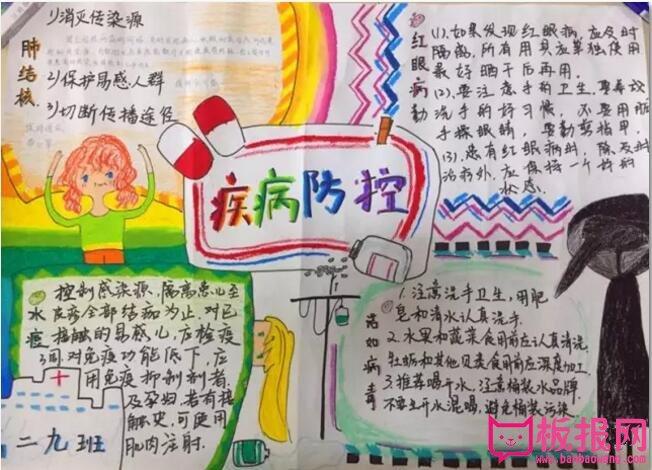 肺结核
1)消灭传染源
2)保护易感人群
3)切断传播途径
红眼病
(1).如果发现红眼病,应及时
隔离,所有用具应单独使用
最好晒干后再用.
(2).要注意手的卫生,要养成
勤洗手的好习惯,不要用脏
手揉眼睛,要勤剪指甲.
(3).患有红眼病时,除及时
治疗外,应保持一个好的
状态.
疾病防控
水痘
控制感染源,隔离患儿至
皮疹全部结痂为止,对已
接触的易感儿,应检疫
3周对免疫功能低下,应
用免疫抑制剂者.
及孕妇者有接
触史,可使用
肌肉注射.
二九班
诺如病毒
1.注意洗手卫生,用肥
皂和清水认真洗手.
2.水果和蔬菜食用前应认真清洗.
牡蛎和其他贝类食用前应深度加工
3.推荐喝开水,注意桶装水品牌
不要生开水混喝,避免桶装污染
板报网
www.banbaowang.com